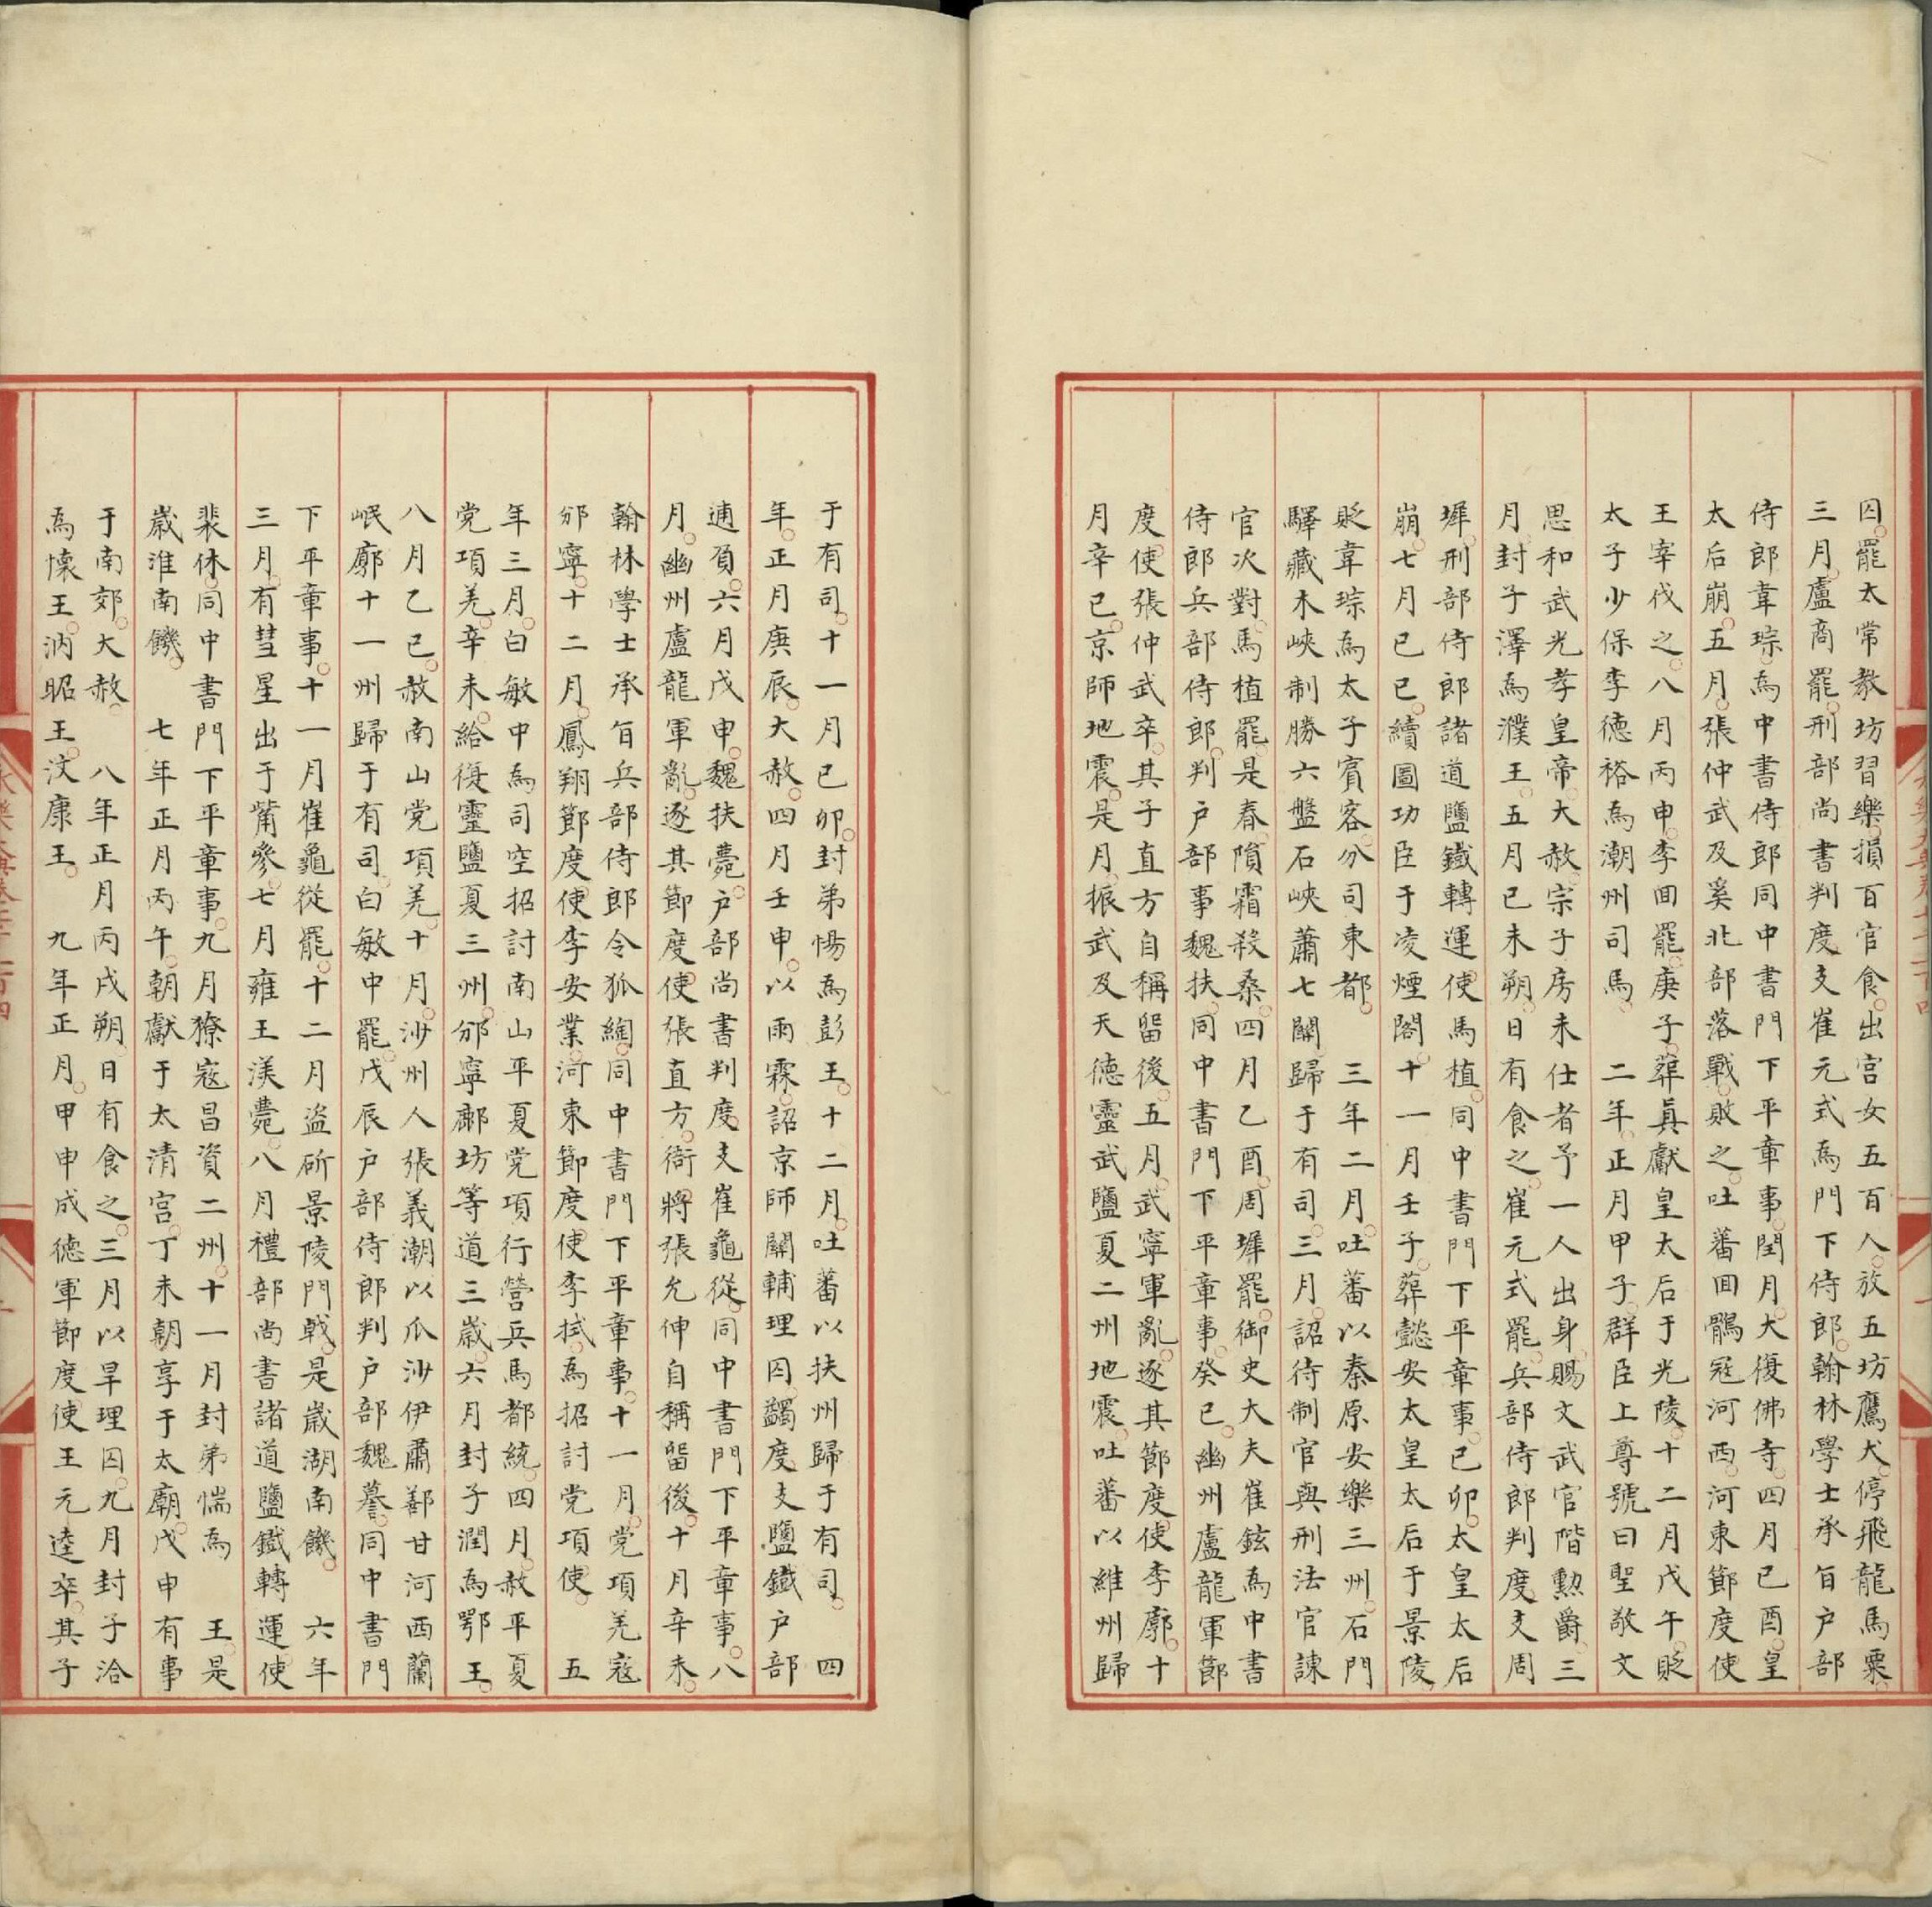 囚罷太常教坊習樂損百官食出宮女五百人放五坊鷹犬停飛龍馬粟
三月盧商罷刑部尚書判度支崔元式爲門下侍郎翰林學士承旨户部
侍郎韋琮爲中書侍郎同中書門下平章事閏月大復佛寺四月己酉皇
太后崩五月張仲武及奚北部落戰敗之吐蕃回鶻寇河西河東節度使
王宰伐之八月丙申李回罷庚子葬真獻皇太后于光陵十二月戊午貶
太子少保李德裕爲潮州司馬　二年正月甲子群臣上尊號曰聖敬文
思和武光孝皇帝大赦宗子房未仕者予一人出身賜文武官階勲爵三
月封子澤爲濮王五月己未朔日有食之崔元式罷兵部侍郎判度支周
墀刑部侍郎諸道鹽鐵轉運使馬植同中書門下平章事己卯太皇太后
崩七月己巳續圖功臣于凌煙閣十一月壬子葬懿安太皇太后于景陵
貶韋琮爲太子賓客分司東都　三年二月吐蕃以秦原安樂三州石門
驛藏木峽制勝六盤石峽蕭七關歸于有司三月詔待制官與刑法官諫
官次對馬植罷是春隕霜殺桑四月乙酉周墀罷御史大夫崔鉉爲中書
侍郎兵部侍郎判户部事魏扶同中書門下平章事癸巳幽州盧龍軍節
度使張仲武卒其子直方自稱留後五月武寧軍亂逐其節度使李廓十
月辛巳京師地震是月振武及天德靈武鹽夏二州地震吐蕃以維州歸
于有司十一月己卯封弟惕爲彭王十二月吐蕃以扶州歸于有司　四
年正月庚辰大赦四月壬申以雨霖詔京師關輔理囚蠲度支鹽鐵户部
逋負六月戊申魏扶薨户部尚書判度支崔龜從同中書門下平章事八
月幽州盧龍軍亂逐其節度使張直方衙將張允伸自稱留後十月辛未
翰林學士承旨兵部侍郎令狐綯同中書門下平章事十一月党項羌寇
邠寧十二月鳳翔節度使李安業河東節度使李拭爲招討党項使　五
年三月白敏中爲司空招討南山平夏党項行營兵馬都統四月赦平夏
党項羌辛未給復靈鹽夏三州邠寧鄜坊等道三歲六月封子潤爲鄂王
八月乙巳赦南山党項羌十月沙州人張義潮以瓜沙伊肅鄯甘河西蘭
岷廓十一州歸于有司白敏中罷戊辰户部侍郎判户部魏謩同中書門
下平章事十一月崔龜從罷十二月盜斫景陵門戟是歲湖南饑　六年
三月有彗星出于觜參七月雍王渼薨八月禮部尚書諸道鹽鐵轉運使
裴休同中書門下平章事九月獠寇昌資二州十一月封弟惴爲　王是
歲淮南饑　七年正月丙午朝獻于太清宮丁未朝享于太廟戊申有事
于南郊大赦　八年正月丙戌朔日有食之三月以旱理囚九月封子洽
爲懷王汭昭王汶康王　九年正月甲申成德軍節度使王元逵卒其子